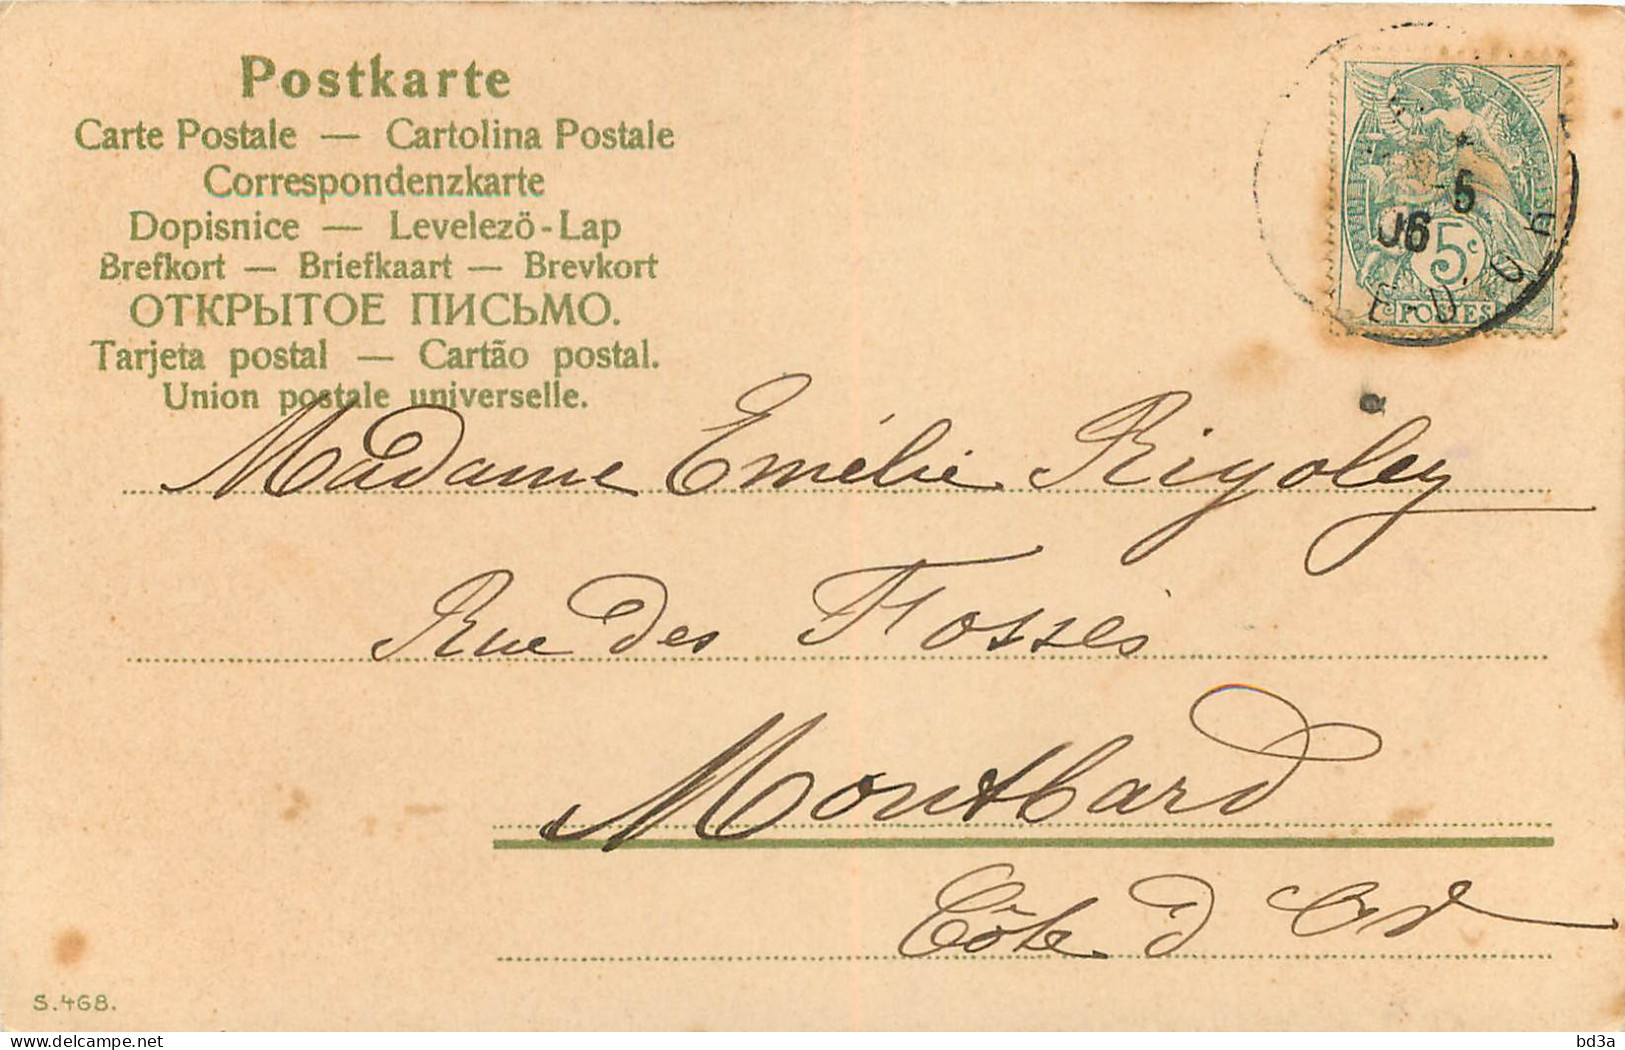 Postkarte
Carte Postale — Cartolina Postale
Correspondenzkarte
Dopisnice — Levelezö-Lap
Brefkort — Briefkaart — Brevkort
ОТКРЫТОЕ ПИСЬМО.
Tarjeta postal — Cartão postal.
Union postale universelle.
-5
06
5c
POSTES
Madame Emélie Rigoley
Rue des Fossés
Montbard
Côte d'Or
S.468.
delcampe.net
bd3a